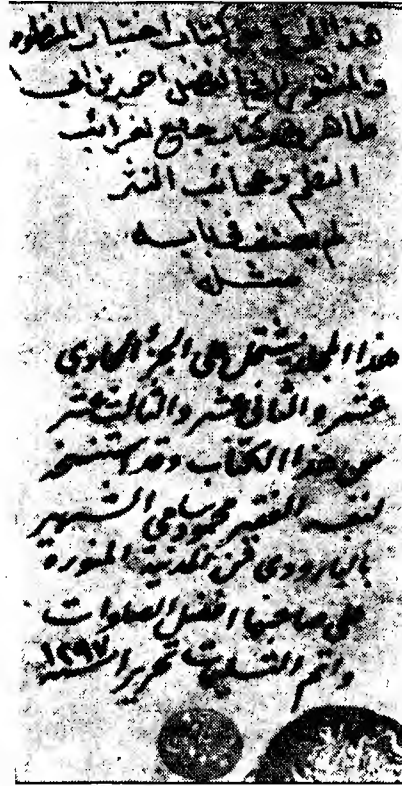 هذا المجلد من كتاب اختيار المنظوم
والمنثور لابي الفضل احمد بن ابي
طاهر هو كتاب جامع لغرائب
النظم وعجائب النثر
لم يصنف في بابه
مثله
هذا المجلد يشتمل على الجزء الحادى
عشر والثانى عشر والثالث عشر
من هذا الكتاب وقد استنسخه
لنفسه الفقير محمود سامى الشهير
بالبارودى من المدينة المنورة
على صاحبها افضل الصلوات
واتم التسليمات تحريرا سنة ١٢٩٧